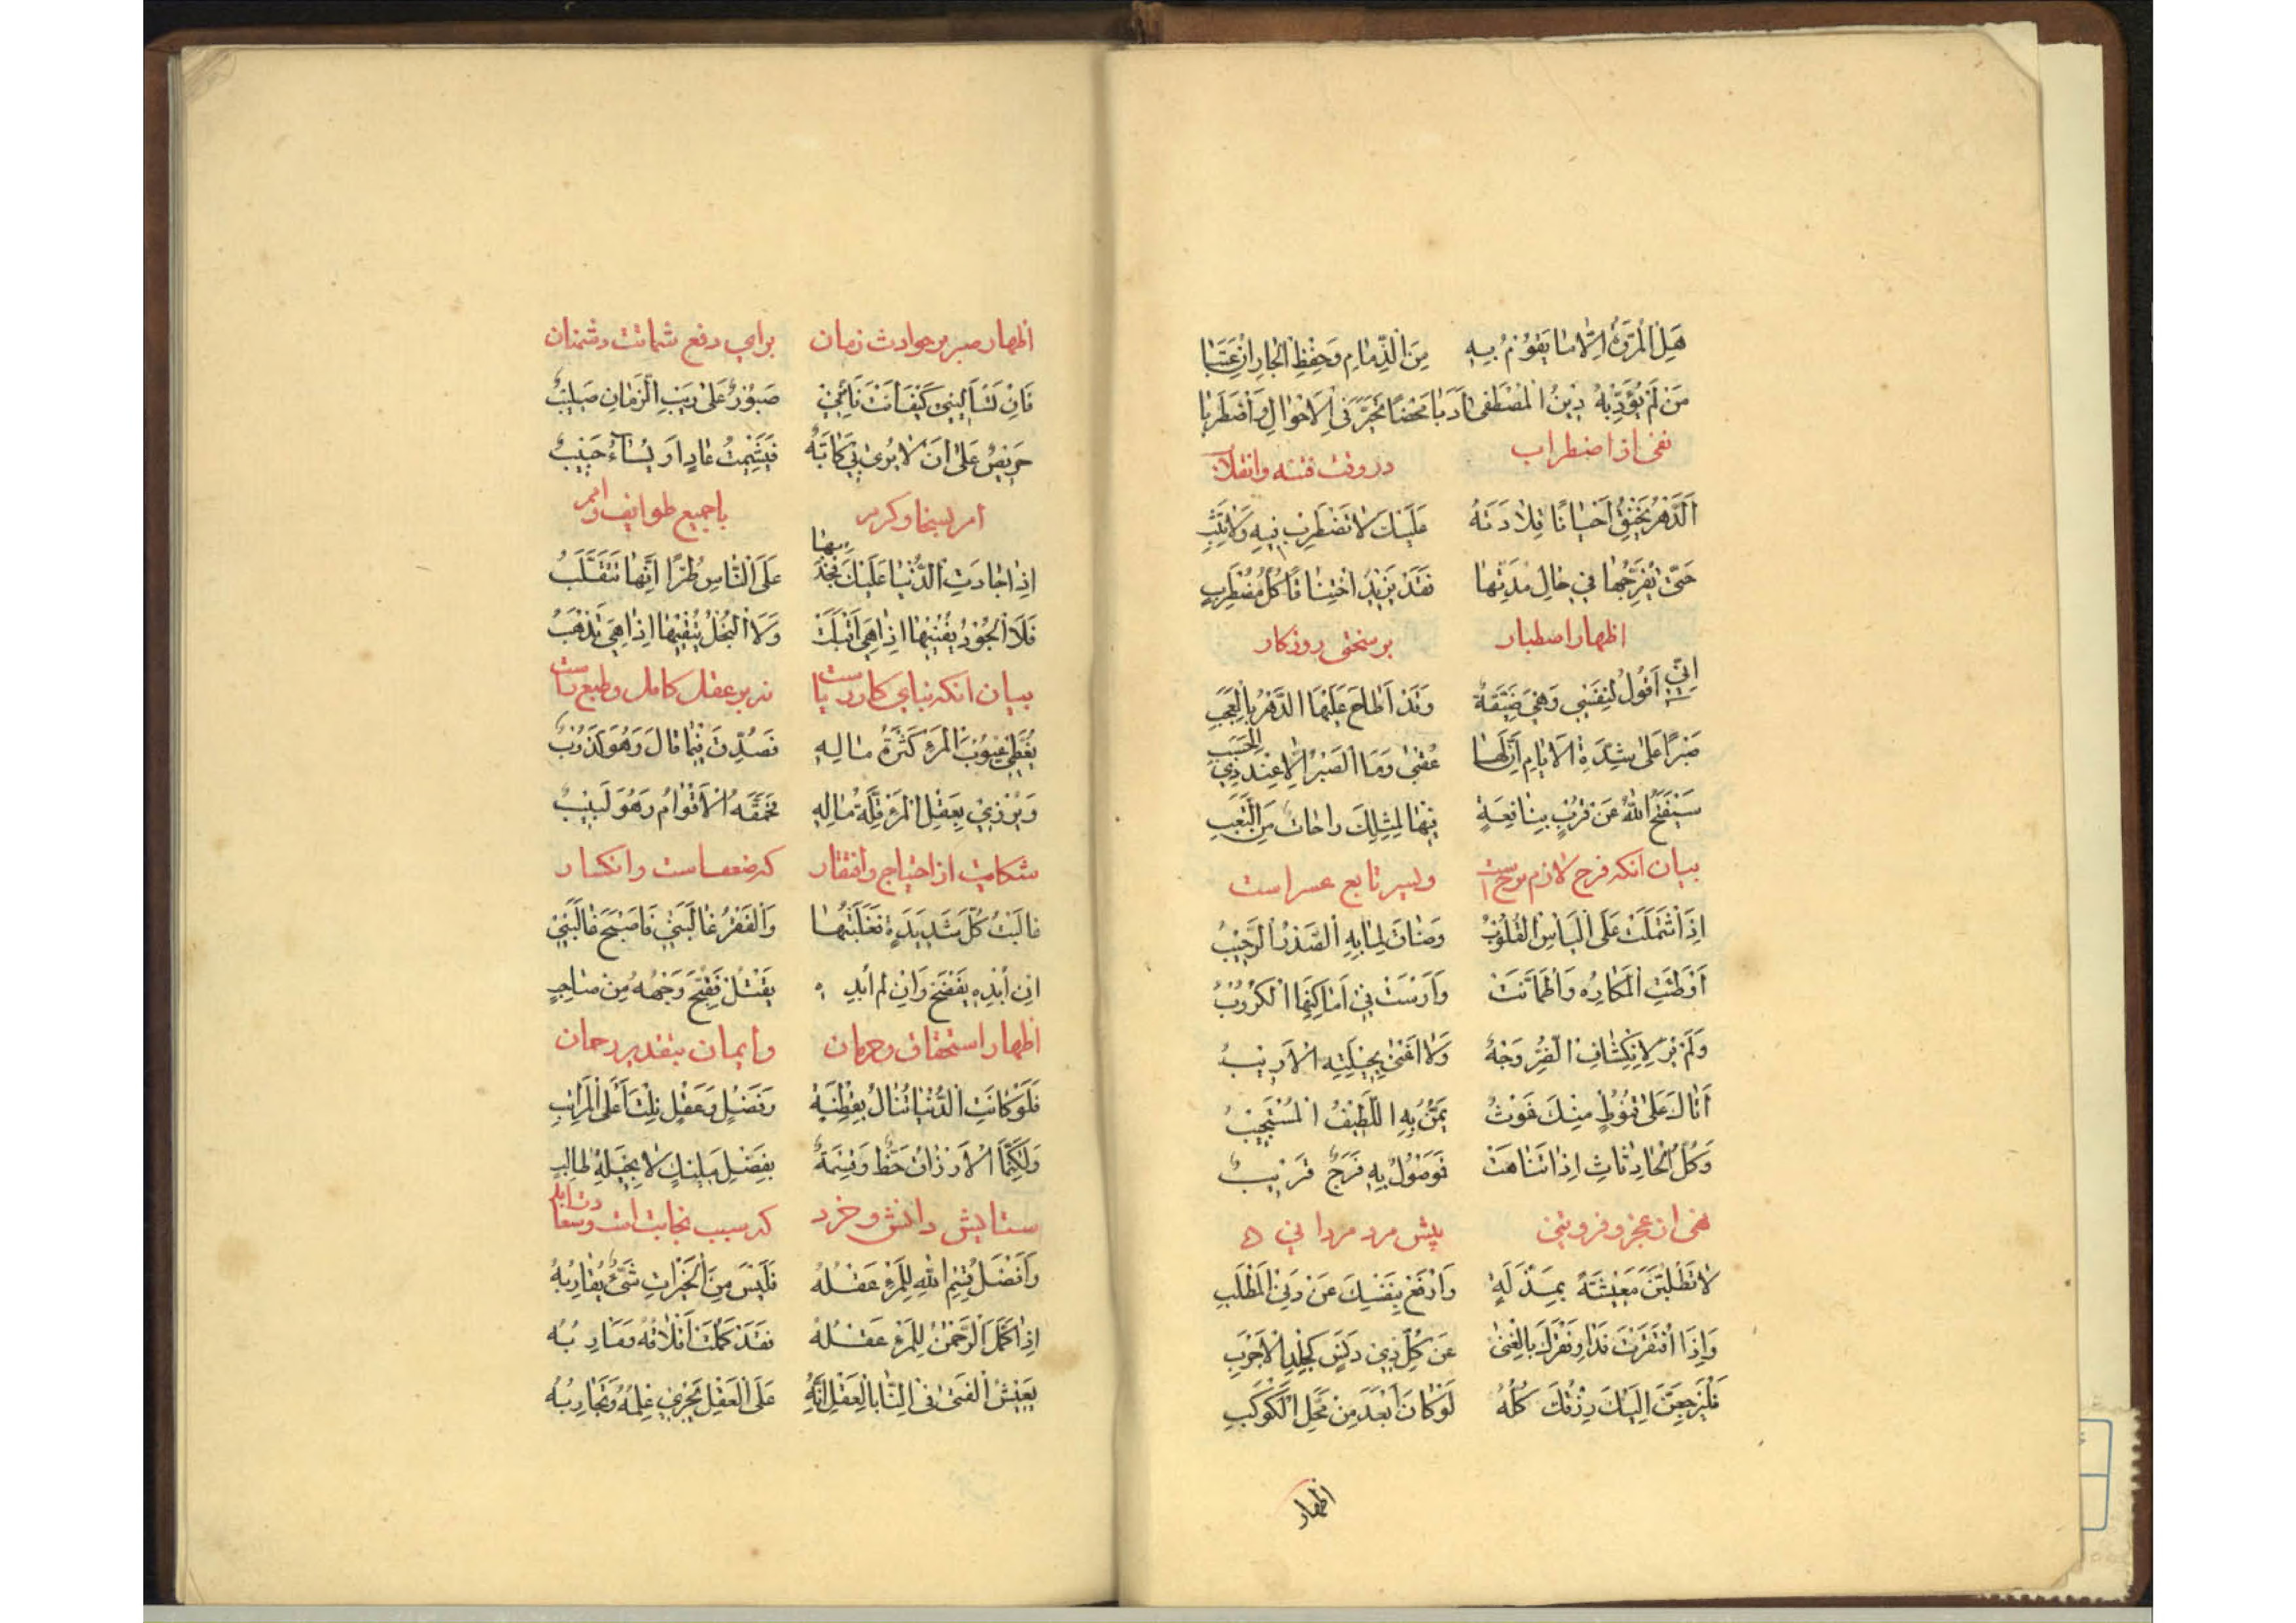 هَلِ الْمُرُوَّةُ اِلَّا مَا يَقُوْمُ بِهِ مِنَ الذِّمَامِ وَحِفْظِ الْجَارِ اِنْ عَتَبَا
مَنْ لَمْ يُؤَدِّبْهُ دِيْنُ الْمُصْطَفٰى اَدَبًا مَحْضًا تَحَيَّرَ فِى الْاَحْوَالِ وَاضْطَرَبَا
نهی از اضطراب در وقت فتنه وانقلاب
اَلدَّهْرُ يَخْنُقُ اَحْيَانًا قِلَادَتَهُ عَلَيْكَ لَا تَضْطَرِبْ فِيهِ وَلَا تَثِبِ
حَتّٰى يُفَرِّجُهَا فِي حَالِ مُدَّتِهَا فَقَدْ يَزِيْدُ اخْتِنَاقًا كُلُّ مُضْطَرِبٍ
اظهار اصطبار بر سختی روزکار
اِنِّى اَقُوْلُ لِنَفْسِي وَهْيَ ضَيِّقَةٌ وَقَدْ اَنَاخَ عَلَيْهَا الدَّهْرُ بِالْعَجَبِ
صَبْرًا عَلٰى شِدَّةِ الْاَيَّامِ اِنَّ لَهَا عُقْبٰى وَمَا الصَّبْرُ اِلَّا عِنْدَ ذِي الْحَسَبِ
سَيَفْتَحُ اللّٰهُ عَنْ قُرْبٍ بِنَافِعَةٍ فِيْهَا لِمِثْلِكَ رَاحَاتٌ مِنَ التَّعَبِ
بیان آنکه فرح لازم ترح است ویسر تابع عسر است
اِذَا اشْتَمَلَتْ عَلَى الْيَاْسِ الْقُلُوْبُ وَضَاقَ لِمَا بِهِ الصَّدْرُ الرَّحِيْبُ
اَوْطَنَتِ الْمَكَارِهُ وَاطْمَاَنَّتْ وَاَرْسَتْ فِي اَمَاكِنِهَا الْكُرُوْبُ
وَلَمْ تَرَ لِانْكِشَافِ الضُّرِّ وَجْهًا وَلَا اَغْنٰى بِحِيْلَتِهِ الْاَرِيْبُ
اَتَاكَ عَلٰى قُنُوْطٍ مِنْكَ غَوْثٌ يَمُنُّ بِهِ اللَّطِيْفُ الْمُسْتَجِيْبُ
وَكُلُّ الْحَادِثَاتِ اِذَا تَنَاهَتْ فَمَوْصُوْلٌ بِهِ فَرَجٌ قَرِيْبٌ
نهی از عجز وفروتنی پیش مرد مردانی
لَا تَطْلُبَنَّ مَعِيْشَةً بِمَذَلَّةٍ وَارْفَعْ بِنَفْسِكَ عَنْ دَنِيِّ الْمَطْلَبِ
وَاِذَا افْتَقَرْتَ فَدَاوِ فَقْرَكَ بِالْغِنٰى عَنْ كُلِّ ذِيْ دَنَسٍ كَجِلْدِ الْاَجْرَبِ
فَلَيَرْجِعَنَّ اِلَيْكَ رِزْقُكَ كُلُّهُ لَوْ كَانَ اَبْعَدَ مِنْ مَحَلِّ الْكَوْكَبِ
اظهار
اظهار صبر بر حوادث زمان برای دفع شماتت دشمنان
فَاِنْ تَسْاَلِيْنِي كَيْفَ اَنْتَ فَاِنَّنِي صَبُوْرٌ عَلٰى رَيْبِ الزَّمَانِ صَلِيْبُ
حَرِيْصٌ عَلٰى اَنْ لَا يُرٰى بِيْ كَآبَةٌ فَيَشْمَتَ عَادٍ اَوْ يُسَاءَ حَبِيْبُ
امر بسخا وکرم با جمیع طوایف وامم
اِذَا جَادَتِ الدُّنْيَا عَلَيْكَ فَجُدْ بِهَا عَلَى النَّاسِ طُرًّا اِنَّهَا تَتَقَلَّبُ
فَلَا الْجُوْدُ يُفْنِيْهَا اِذَا هِيَ اَقْبَلَتْ وَلَا الْبُخْلُ يُبْقِيْهَا اِذَا هِيَ تَذْهَبُ
بیان آنکه بنای کار دنیاست نه بر عقل کامل وطبع راست
يُغَطِّي عُيُوْبَ الْمَرْءِ كَثْرَةُ مَالِهِ فَصُدِّقَ فِيْمَا قَالَ وَهُوَ كَذُوْبُ
وَيُزْرِيْ بِعَقْلِ الْمَرْءِ قِلَّةُ مَالِهِ يُحَمِّقُهُ الْاَقْوَامُ وَهُوَ لَبِيْبُ
شکایت از احتیاج وافتقار که ضعف است وانکسار
غَالَبْتُ كُلَّ شَدِيْدَةٍ فَغَلَبْتُهَا وَالْفَقْرُ غَالَبَنِيْ فَاَصْبَحَ غَالِبِيْ
اِنْ اُبْدِهِ يَفْضَحْ وَاِنْ لَمْ اُبْدِهِ يَقْتُلْ فَقُبِّحَ وَجْهُهُ مِنْ صَاحِبٍ
اظهار استحقاق وحرمان وایمان بتقدیر رحمان
فَلَوْ كَانَتِ الدُّنْيَا تُنَالُ بِفِطْنَةٍ وَفَضْلٍ وَعَقْلٍ نِلْتُ اَعْلَى الْمَرَاتِبِ
وَلٰكِنَّمَا الْاَرْزَاقُ حَظٌّ وَقِسْمَةٌ بِفَضْلِ مَلِيْكٍ لَا بِحِيْلَةِ طَالِبٍ
ستایش دانش وخرد که سبب نجابت است
وَاَفْضَلُ قِسْمِ اللّٰهِ لِلْمَرْءِ عَقْلُهُ فَلَيْسَ مِنَ الْخَيْرَاتِ شَيْءٌ يُقَارِبُهُ
اِذَا كَمَّلَ الرَّحْمٰنُ لِلْمَرْءِ عَقْلَهُ فَقَدْ كَمُلَتْ اَخْلَاقُهُ وَمَآرِبُهُ
يَعِيْشُ الْفَتٰى فِى النَّاسِ بِالْعَقْلِ اِنَّهُ عَلَى الْعَقْلِ يَجْرِيْ عِلْمُهُ وَتَجَارِبُهُ